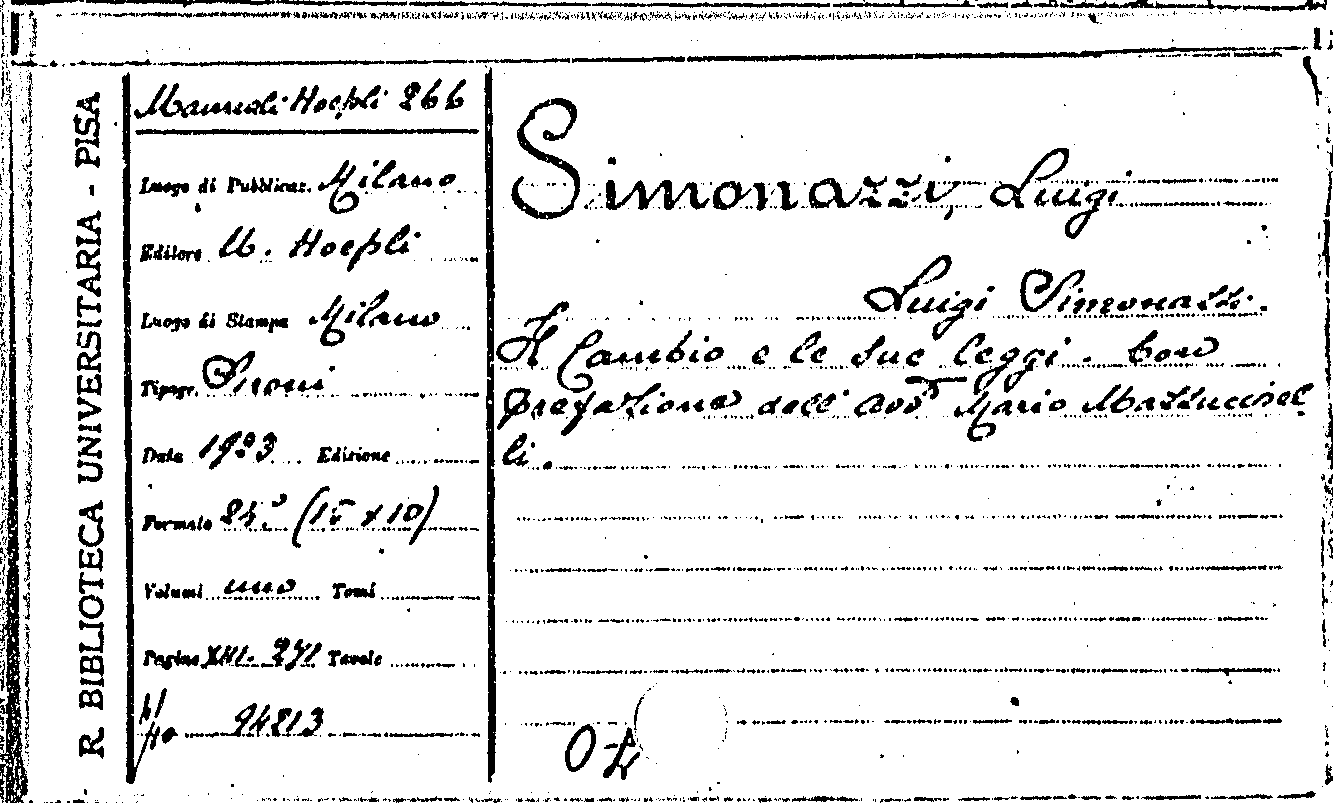 R. BIBLIOTECA UNIVERSITARIA - PISA
Manuali Hoepli 266
Luogo di Pubblicaz. Milano
Editore U. Hoepli
Luogo di Stampa Milano
Tipogr.
Data 1923 Edizione
Formato 24.° (15 x 10)
Volumi uno Tomi
Pagine XIII. 271 Tavole
94813
Simonazzi, Luigi
Luigi Simonazzi.
Il Cambio e le sue leggi. Con
prefazione dell' avv. Mario Mazzuccel
li.